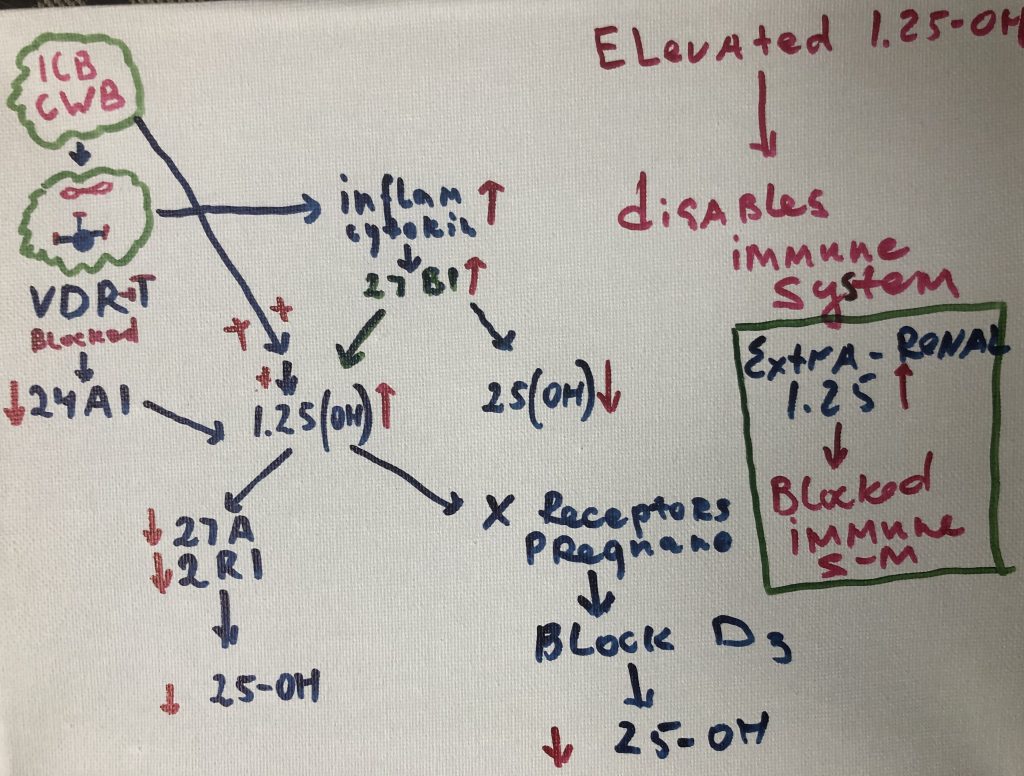 ICB
CWB
VDR-T
Blocked
↓ 24A1
inflam ↑
cytokin
27 B1 ↑
+
+
+
1.25(OH) ↑
25(OH) ↓
↓ 27A
↓ 2R1
↓ 25-OH
X Receptors
PRegnano
BLock D3
↓ 25-OH
ELevAted 1.25-OH
disABles
immune
System
ExtrA-RENAL
1.25 ↑
BLocked
immune
S-M